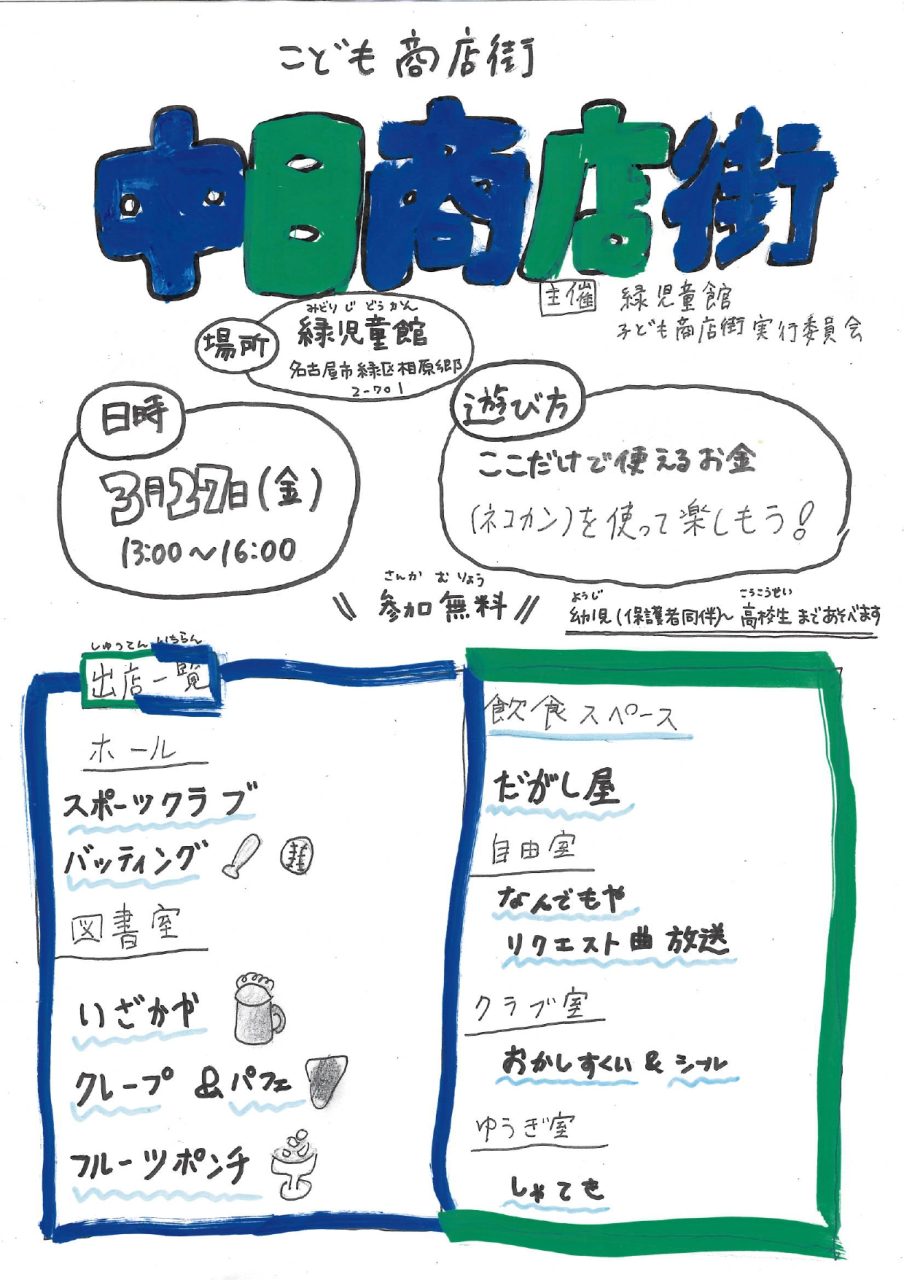 こども商店街
中日商店街
主催 緑児童館
子ども商店街実行委員会
場所
みどりじどうかん
緑児童館
名古屋市緑区相原郷
2-701
日時
3月27日(金)
13:00～16:00
遊び方
ここだけで使えるお金
(ネコカン)を使って楽しもう!
さんか むりょう
\\ 参加無料 //
ようじ こうこうせい
幼児(保護者同伴)～高校生まであそべます
しゅってん いちらん
出店一覧
ホール
スポーツクラブ
バッティング
図書室
いざかや
クレープ&パフェ
フルーツポンチ
飲食スペース
だがし屋
自由室
なんでもや
リクエスト曲放送
クラブ室
おかしすくい&シール
ゆうぎ室
しゃてき